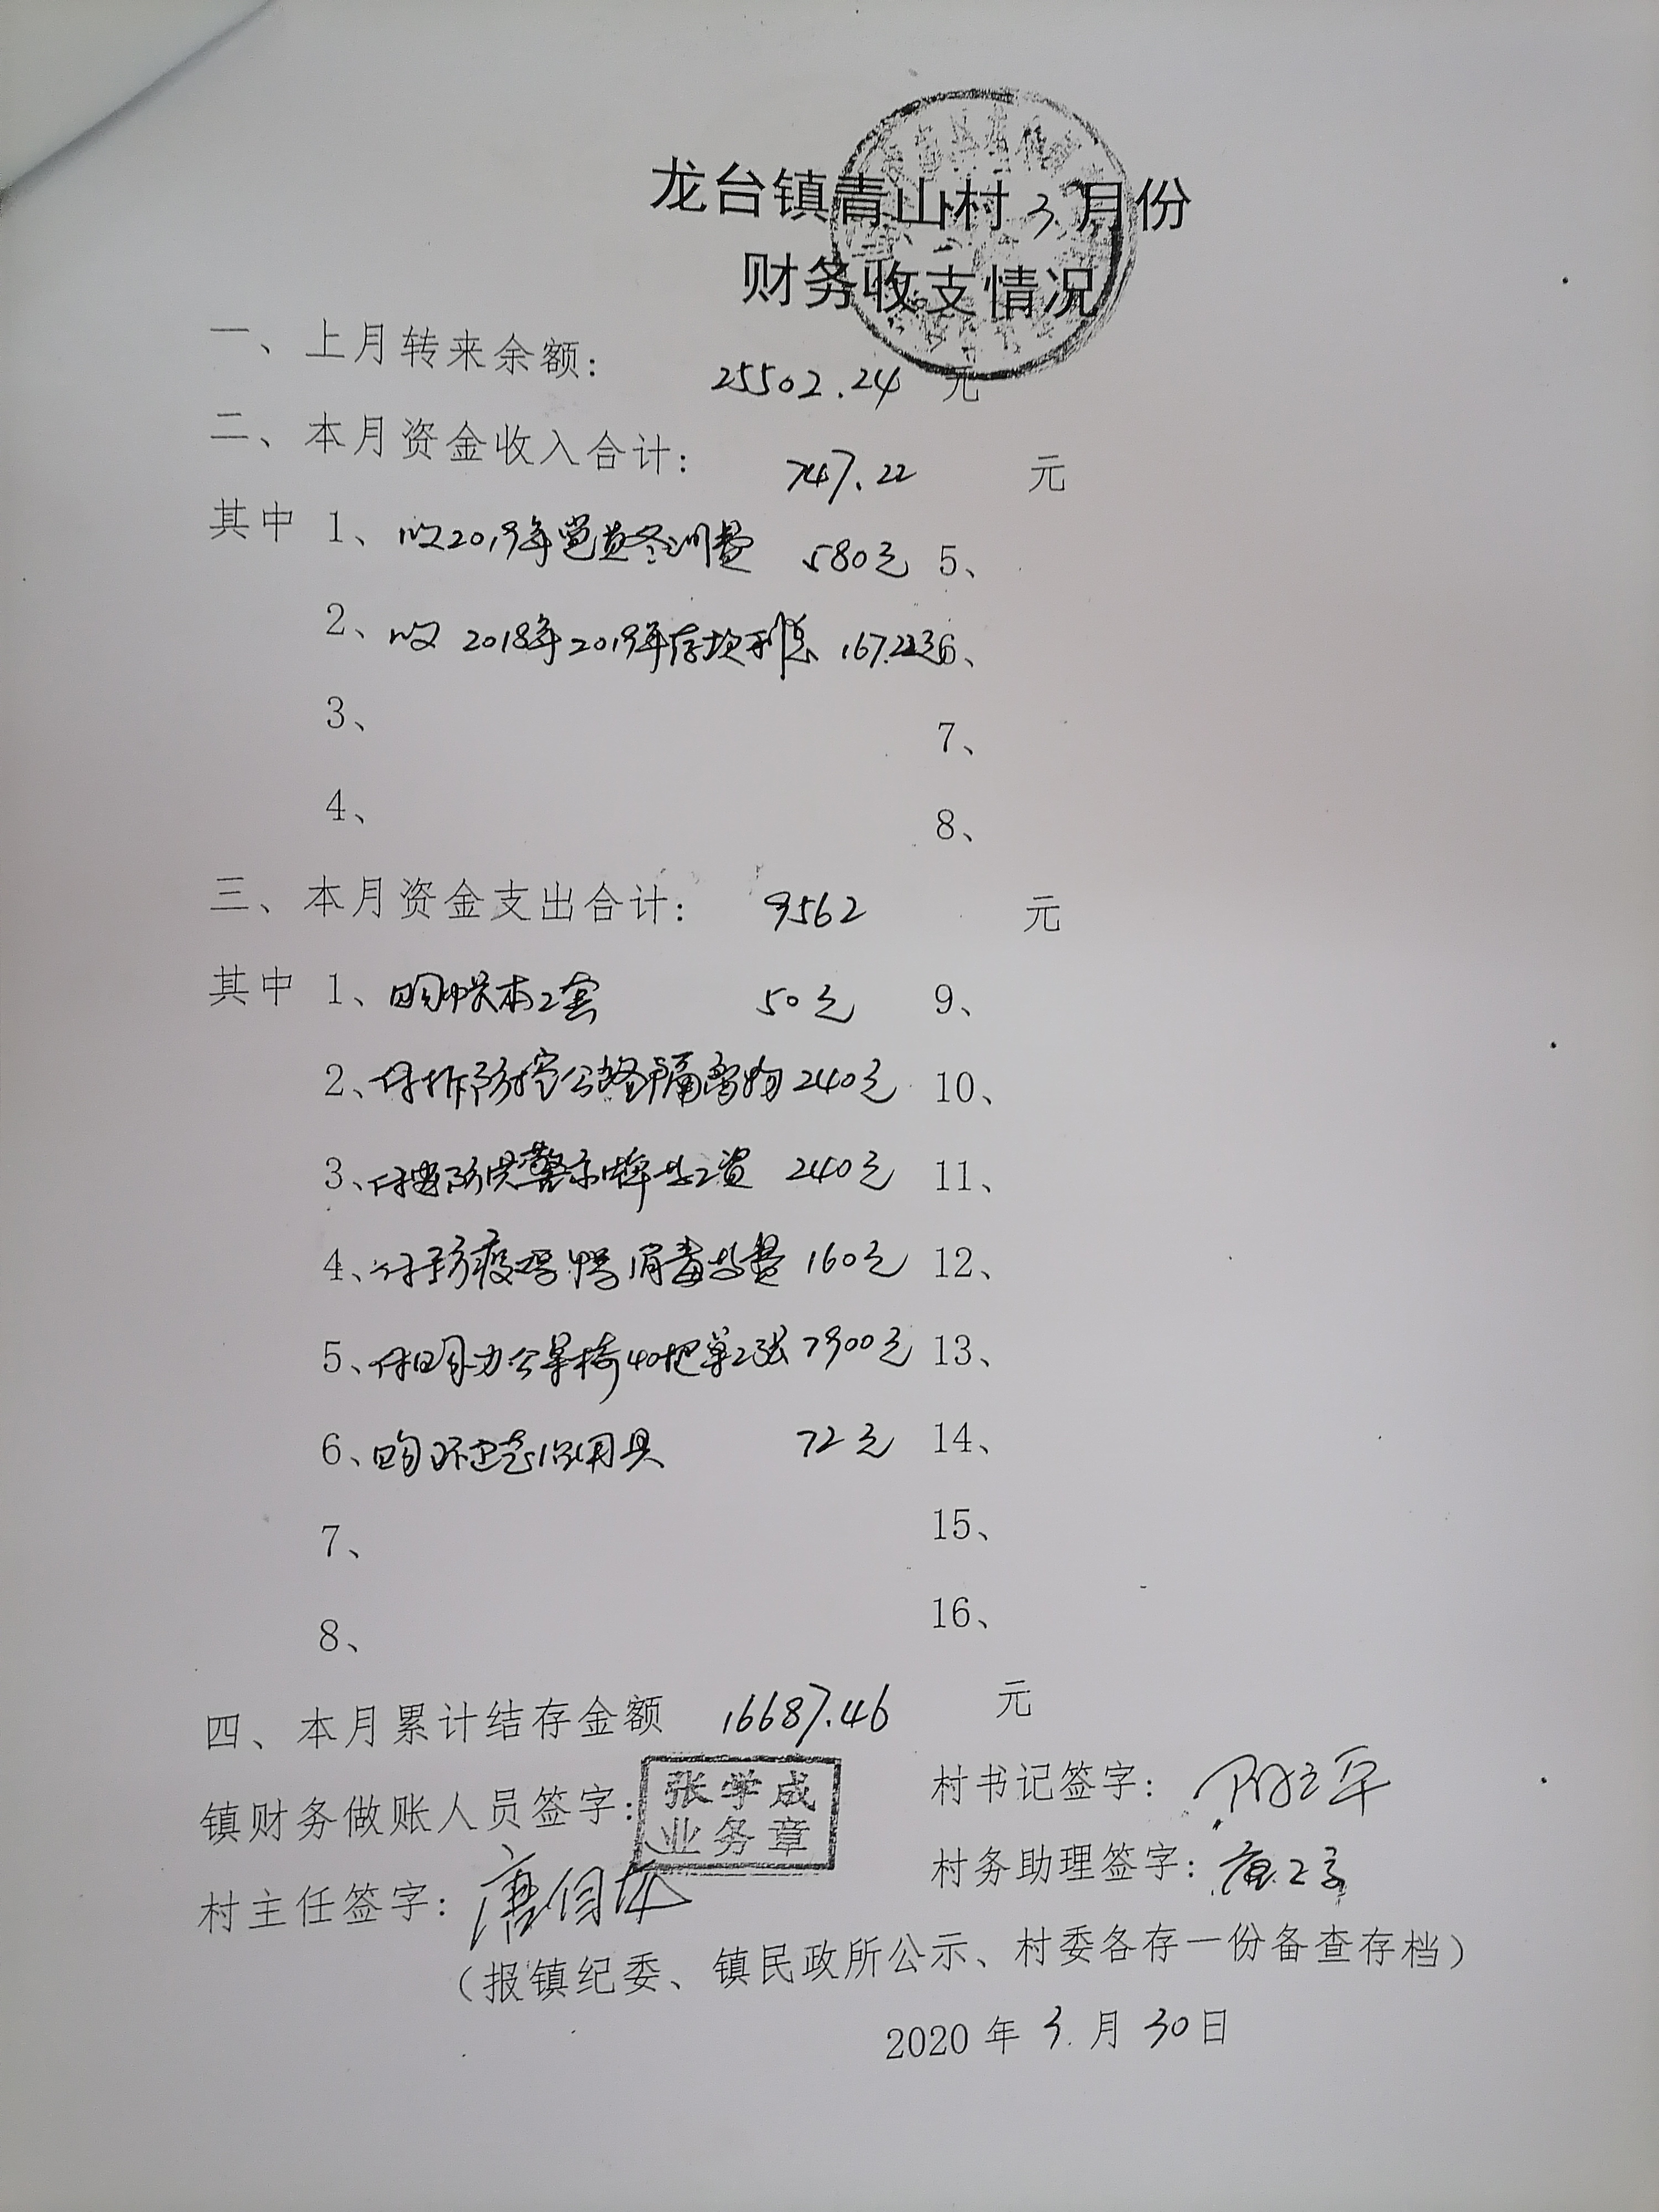 龙台镇青山村3月份
财务收支情况
一、上月转来余额： 25502.24 元
二、本月资金收入合计： 747.22 元
其中 1、收2019年党员冬训费 580元 5、
2、收2018年2019年存款利息 167.22元 6、
3、 7、
4、 8、
三、本月资金支出合计： 9562 元
其中 1、购 本2套 50元 9、
2、付 防控公路 隔离物 240元 10、
3、付 防 警示牌 工资 240元 11、
4、付 防疫 消毒 费 160元 12、
5、付 办公 椅40把 2张 7900元 13、
6、购环卫 用具 72元 14、
7、 15、
8、 16、
四、本月累计结存金额 16687.46 元
镇财务做账人员签字： 张学成 村书记签字：
业务章
村主任签字：唐 村务助理签字：
（报镇纪委、镇民政所公示、村委各存一份备查存档）
2020年3月30日